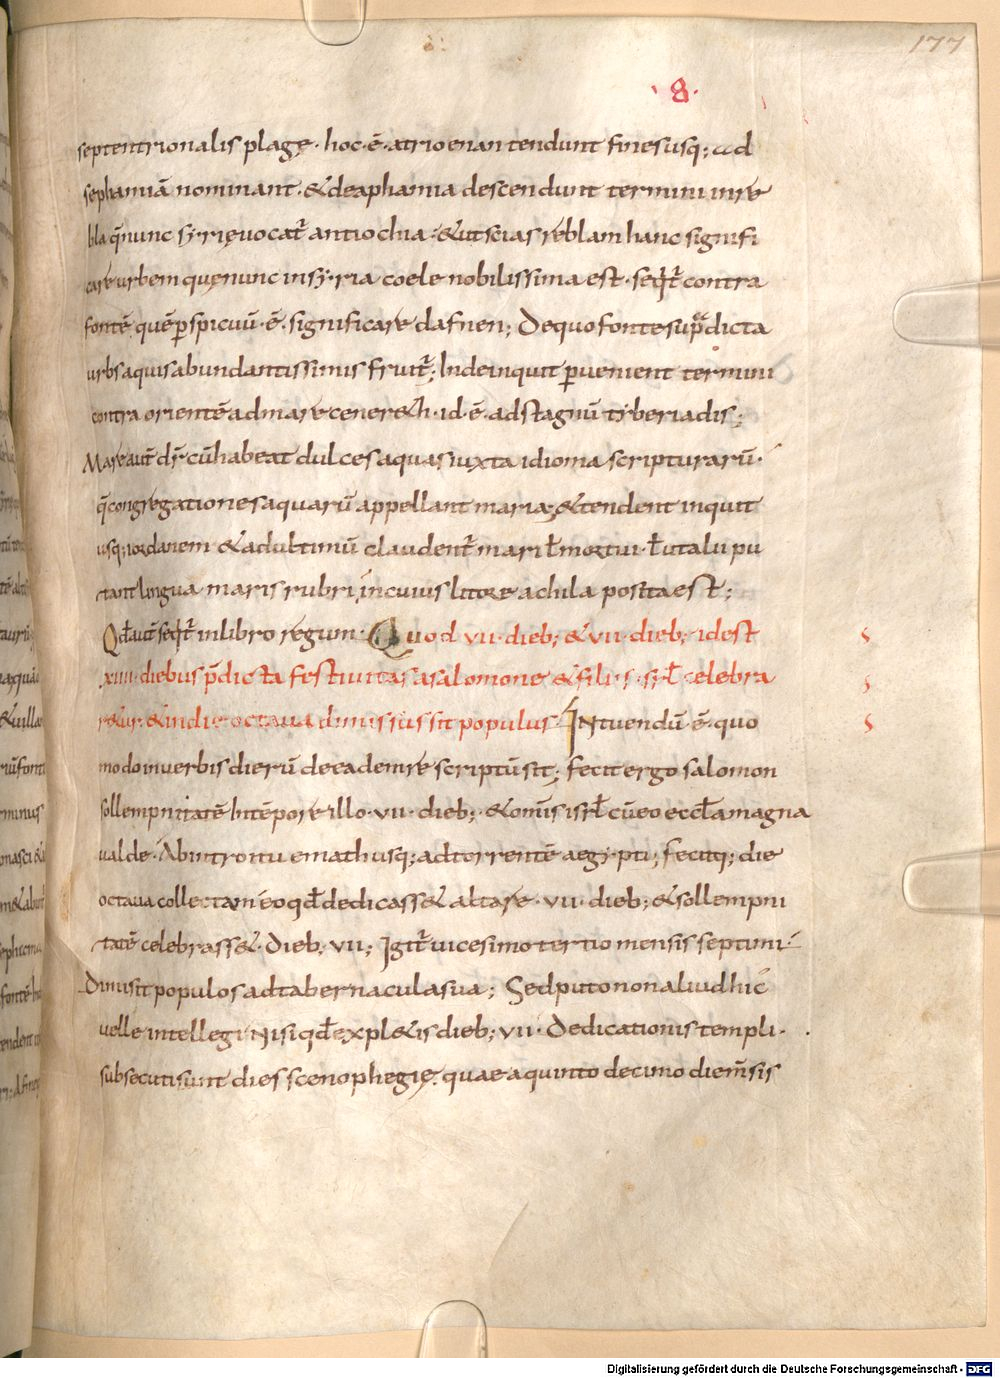 177
·8·
septentrionalis plagę· hoc·ē·atrio enan tendunt fines usq; ad
sephamiā nominant·&de aphamia descendunt termini in re
bla q̄ nunc syrię uocat̄ antiochia·&ut scias reblam hanc signifi
care urbem quę nunc in syria coele nobilissima est·seqt̄ contra
fontē quē p̱spicuū·ē·significare dafnen; De quo fonte sup̄dicta
urbs aquis abundantissimis fruit̄; Inde inquit p̱uenient termini
contra orientē ad mare cenereth·id·ē·ad stagnū tyberiadis;
Mare aut̄ dr̄ cū habeat dulces aquas iuxta idioma scripturarū·
q̄ congregationes aquarū appellant maria; &tendent inquit
usq; iordanem &ad ultimū claudent̄ mari ł mortui·ł ut alii pu
tant lingua maris rubri, in cuius litore achila posita est;
Qđ aut̄ seqt̄ in libro regum· Quod vii·dieb; &vii·dieb; idest
xiiii·diebus p̄dicta festiuitas a salomone &filiis·isrł celebra
retur·&in die octaua dimissus sit populus· INtuendū·ē·quo
modo in uerbis dierū de eadem re scriptū sit; fecit ergo salomon
sollempnitatē in tēpore illo·vii·dieb;·&omīs isrł cū eo ecclā magna
ualde·Ab introitu emath usq; ad torrentē aegypti; fecitq; die
octaua collectam eo qđ dedicass& altare·vii·dieb; &sollempni
tatē celebrass&·dieb; vii; Igit̄ uicesimo tertio mensis septimi
Dimisit populos ad tabernacula sua; Sed puto non aliud hic
uelle intellegi Nisi qđ expl&is dieb; vii·Dedicationis templi·
subsecuti sunt dies scenophegię· quae a quinto decimo die m̄sis
Digitalisierung gefördert durch die Deutsche Forschungsgemeinschaft - DFG